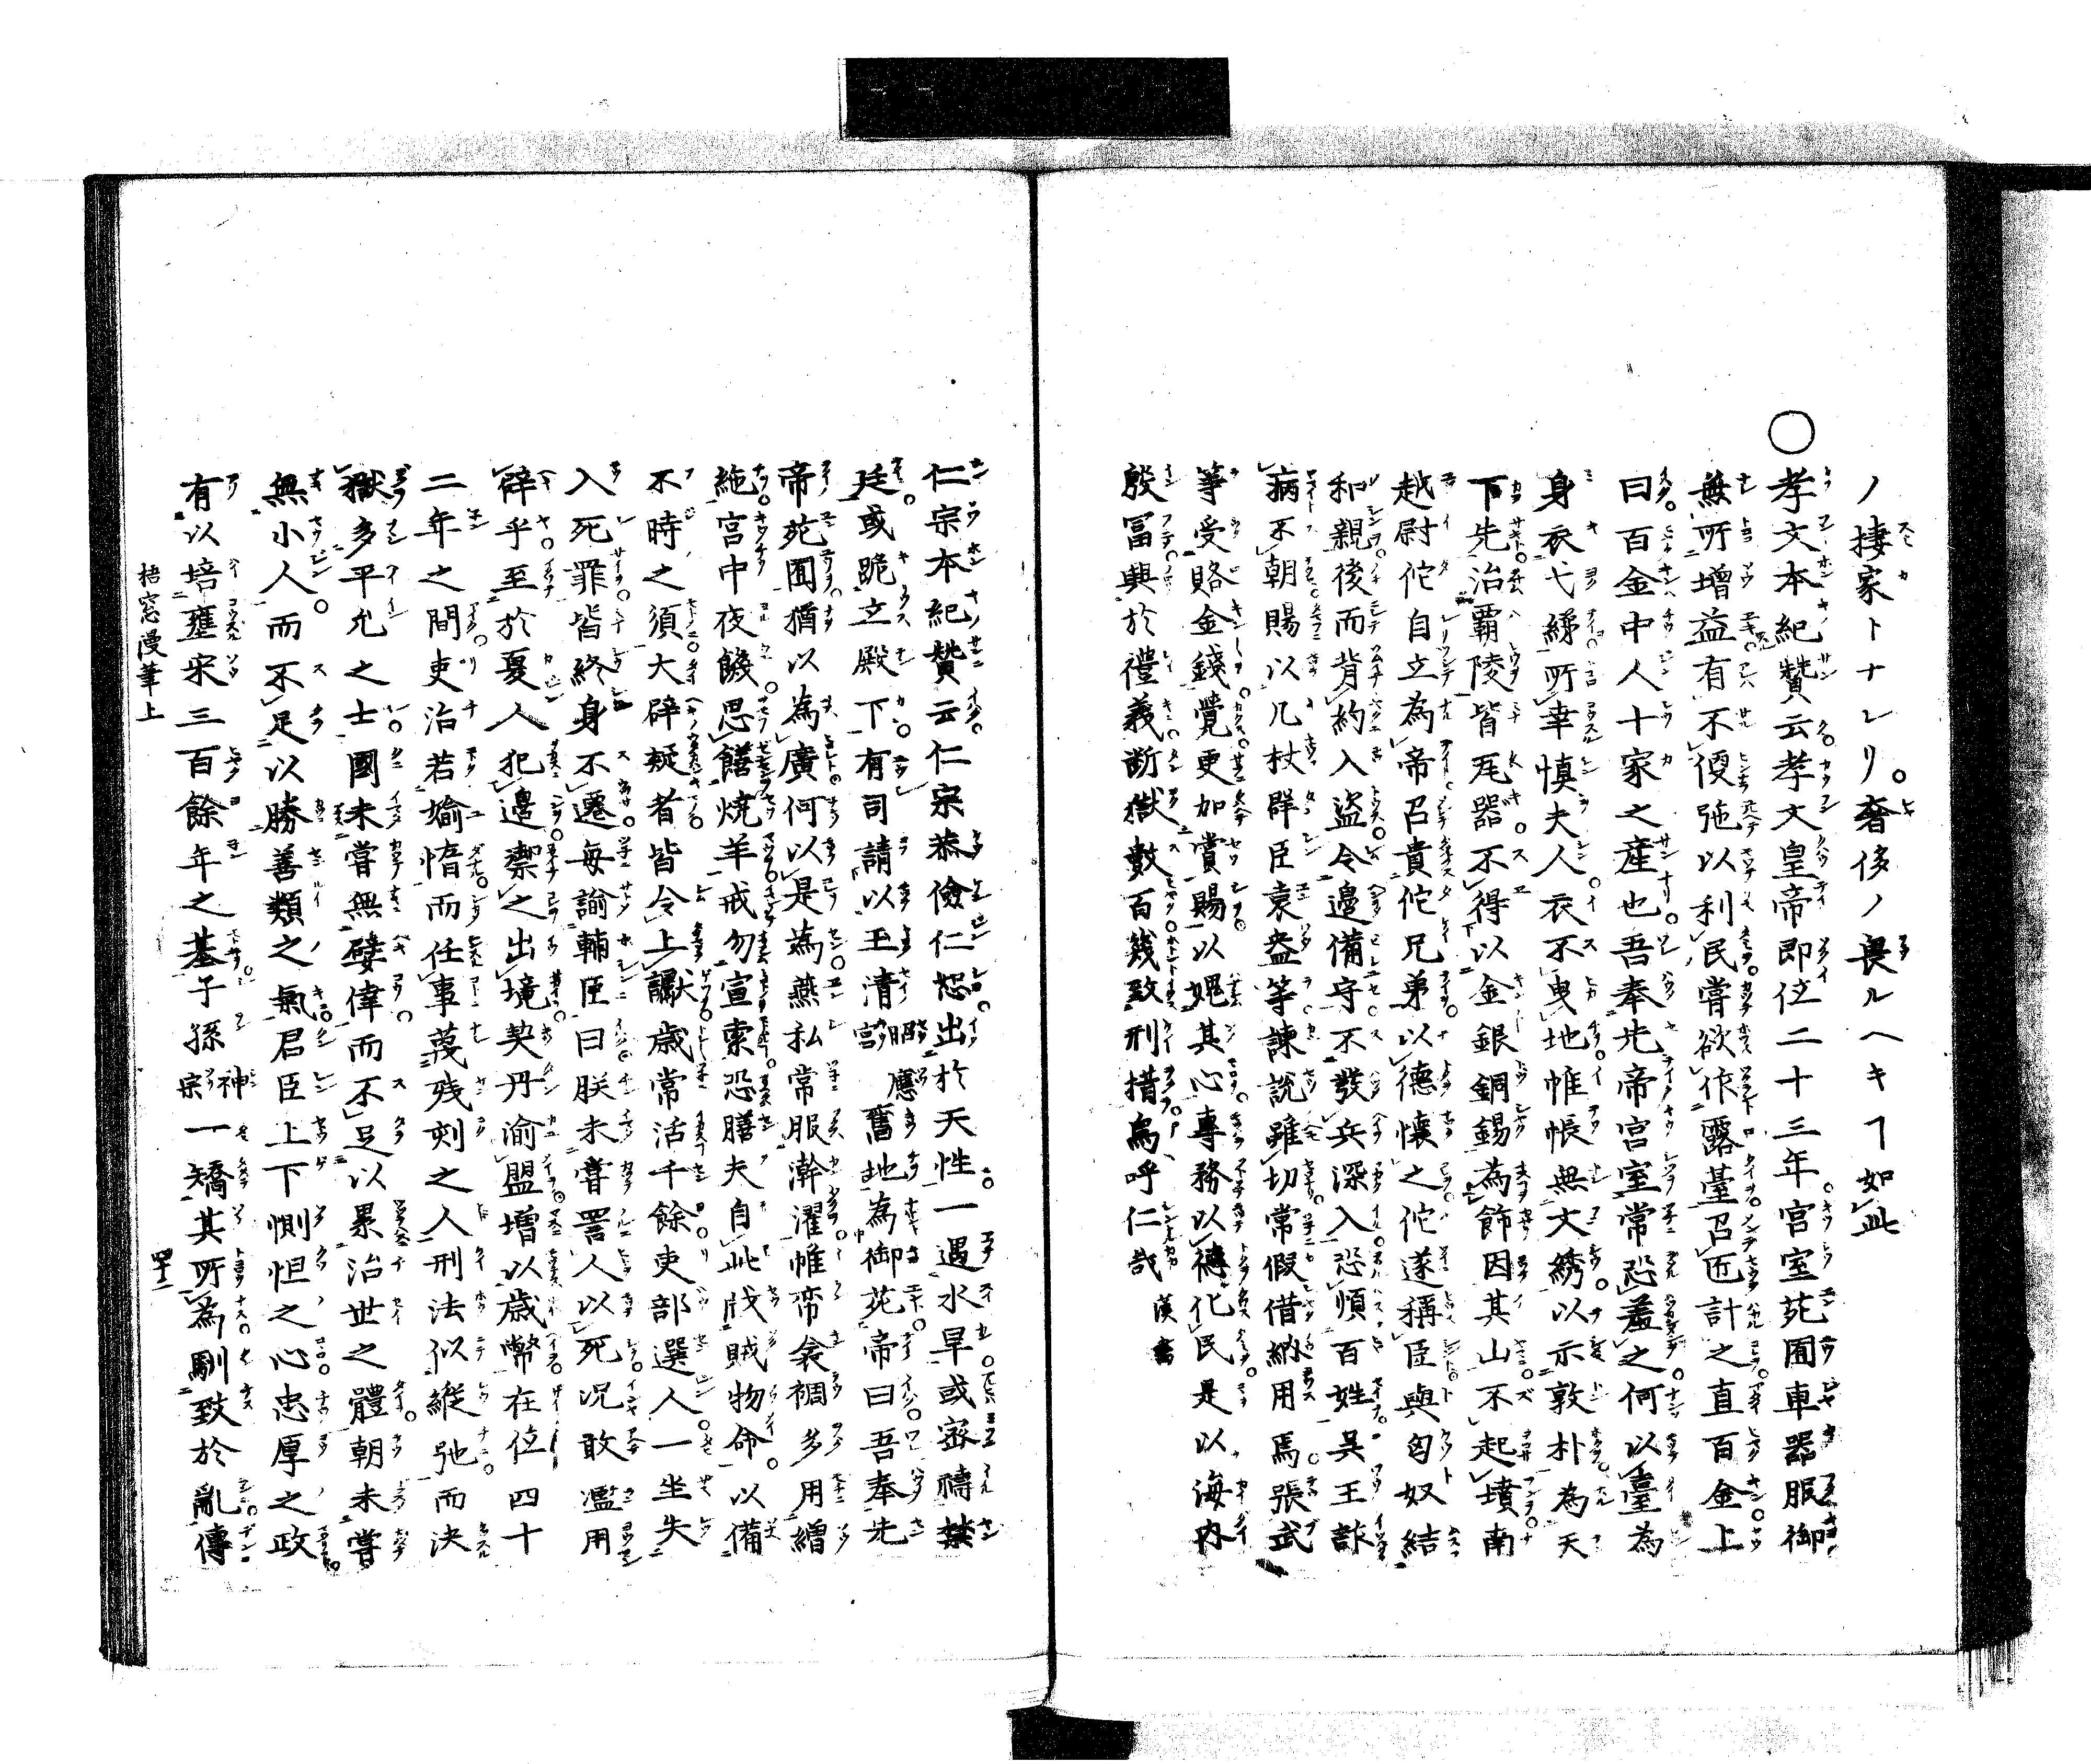 ノ捿家トナレリ。奢侈ノ畏ルヘキヿ如此
○孝文本紀賛云孝文皇帝即位二十三年。宮室苑囿車器服御
無所増益有不便弛以利民甞欲作露臺召匠計之直百金上
曰百金中人十家之産也吾奉先帝宮室常恐羞之何以臺為
身衣弋綈所幸慎夫人衣不曳地帷帳無文綉以示敦朴為天
下先治覇陵皆瓦器不得以金銀銅錫為飾因其山不起墳南
越尉佗自立為帝召貴佗兄弟以徳懐之佗遂稱臣與匈奴結
和親後而背約入盗令邊備守不發兵深入恐煩百姓呉王詐
病不朝賜以几杖群臣袁盎等諌説雖切常假借納用焉張武
等受賂金錢覺更加賞賜以媿其心專務以徳化民是以海内
殷冨興於禮義断獄數百幾致刑措烏呼仁哉 漢書
仁宗本紀賛云仁宗恭儉仁恕出於天性一遇水旱或密禱禁
廷或跪立殿下有司請以玉清昭應宮舊地為御苑帝曰吾奉先
帝苑囿猶以為廣何以是為燕私常服澣濯帷帟衾裯多用繒
絁宮中夜饑思膳焼羊戒勿宣索恐膳夫自此戕賊物命以備
不時之須大辟疑者皆令上讞歳常活千餘吏部選人一坐失
入死罪皆終身不遷毎諭輔臣曰朕未甞詈人以死况敢濫用
辟乎至於夏人犯邊禦之出境契丹渝盟増以歳幣在位四十
二年之間吏治若媮惰而任事蔑残刻之人刑法似縱弛而决
獄多平允之士國未甞無嬖倖而不足以累治世之體朝未甞
無小人而不足以勝善類之氣君臣上下惻怛之心忠厚之政
有以培壅宋三百餘年之基子孫神宗一矯其所為馴致於亂傳
梧窓漫筆上 四十二